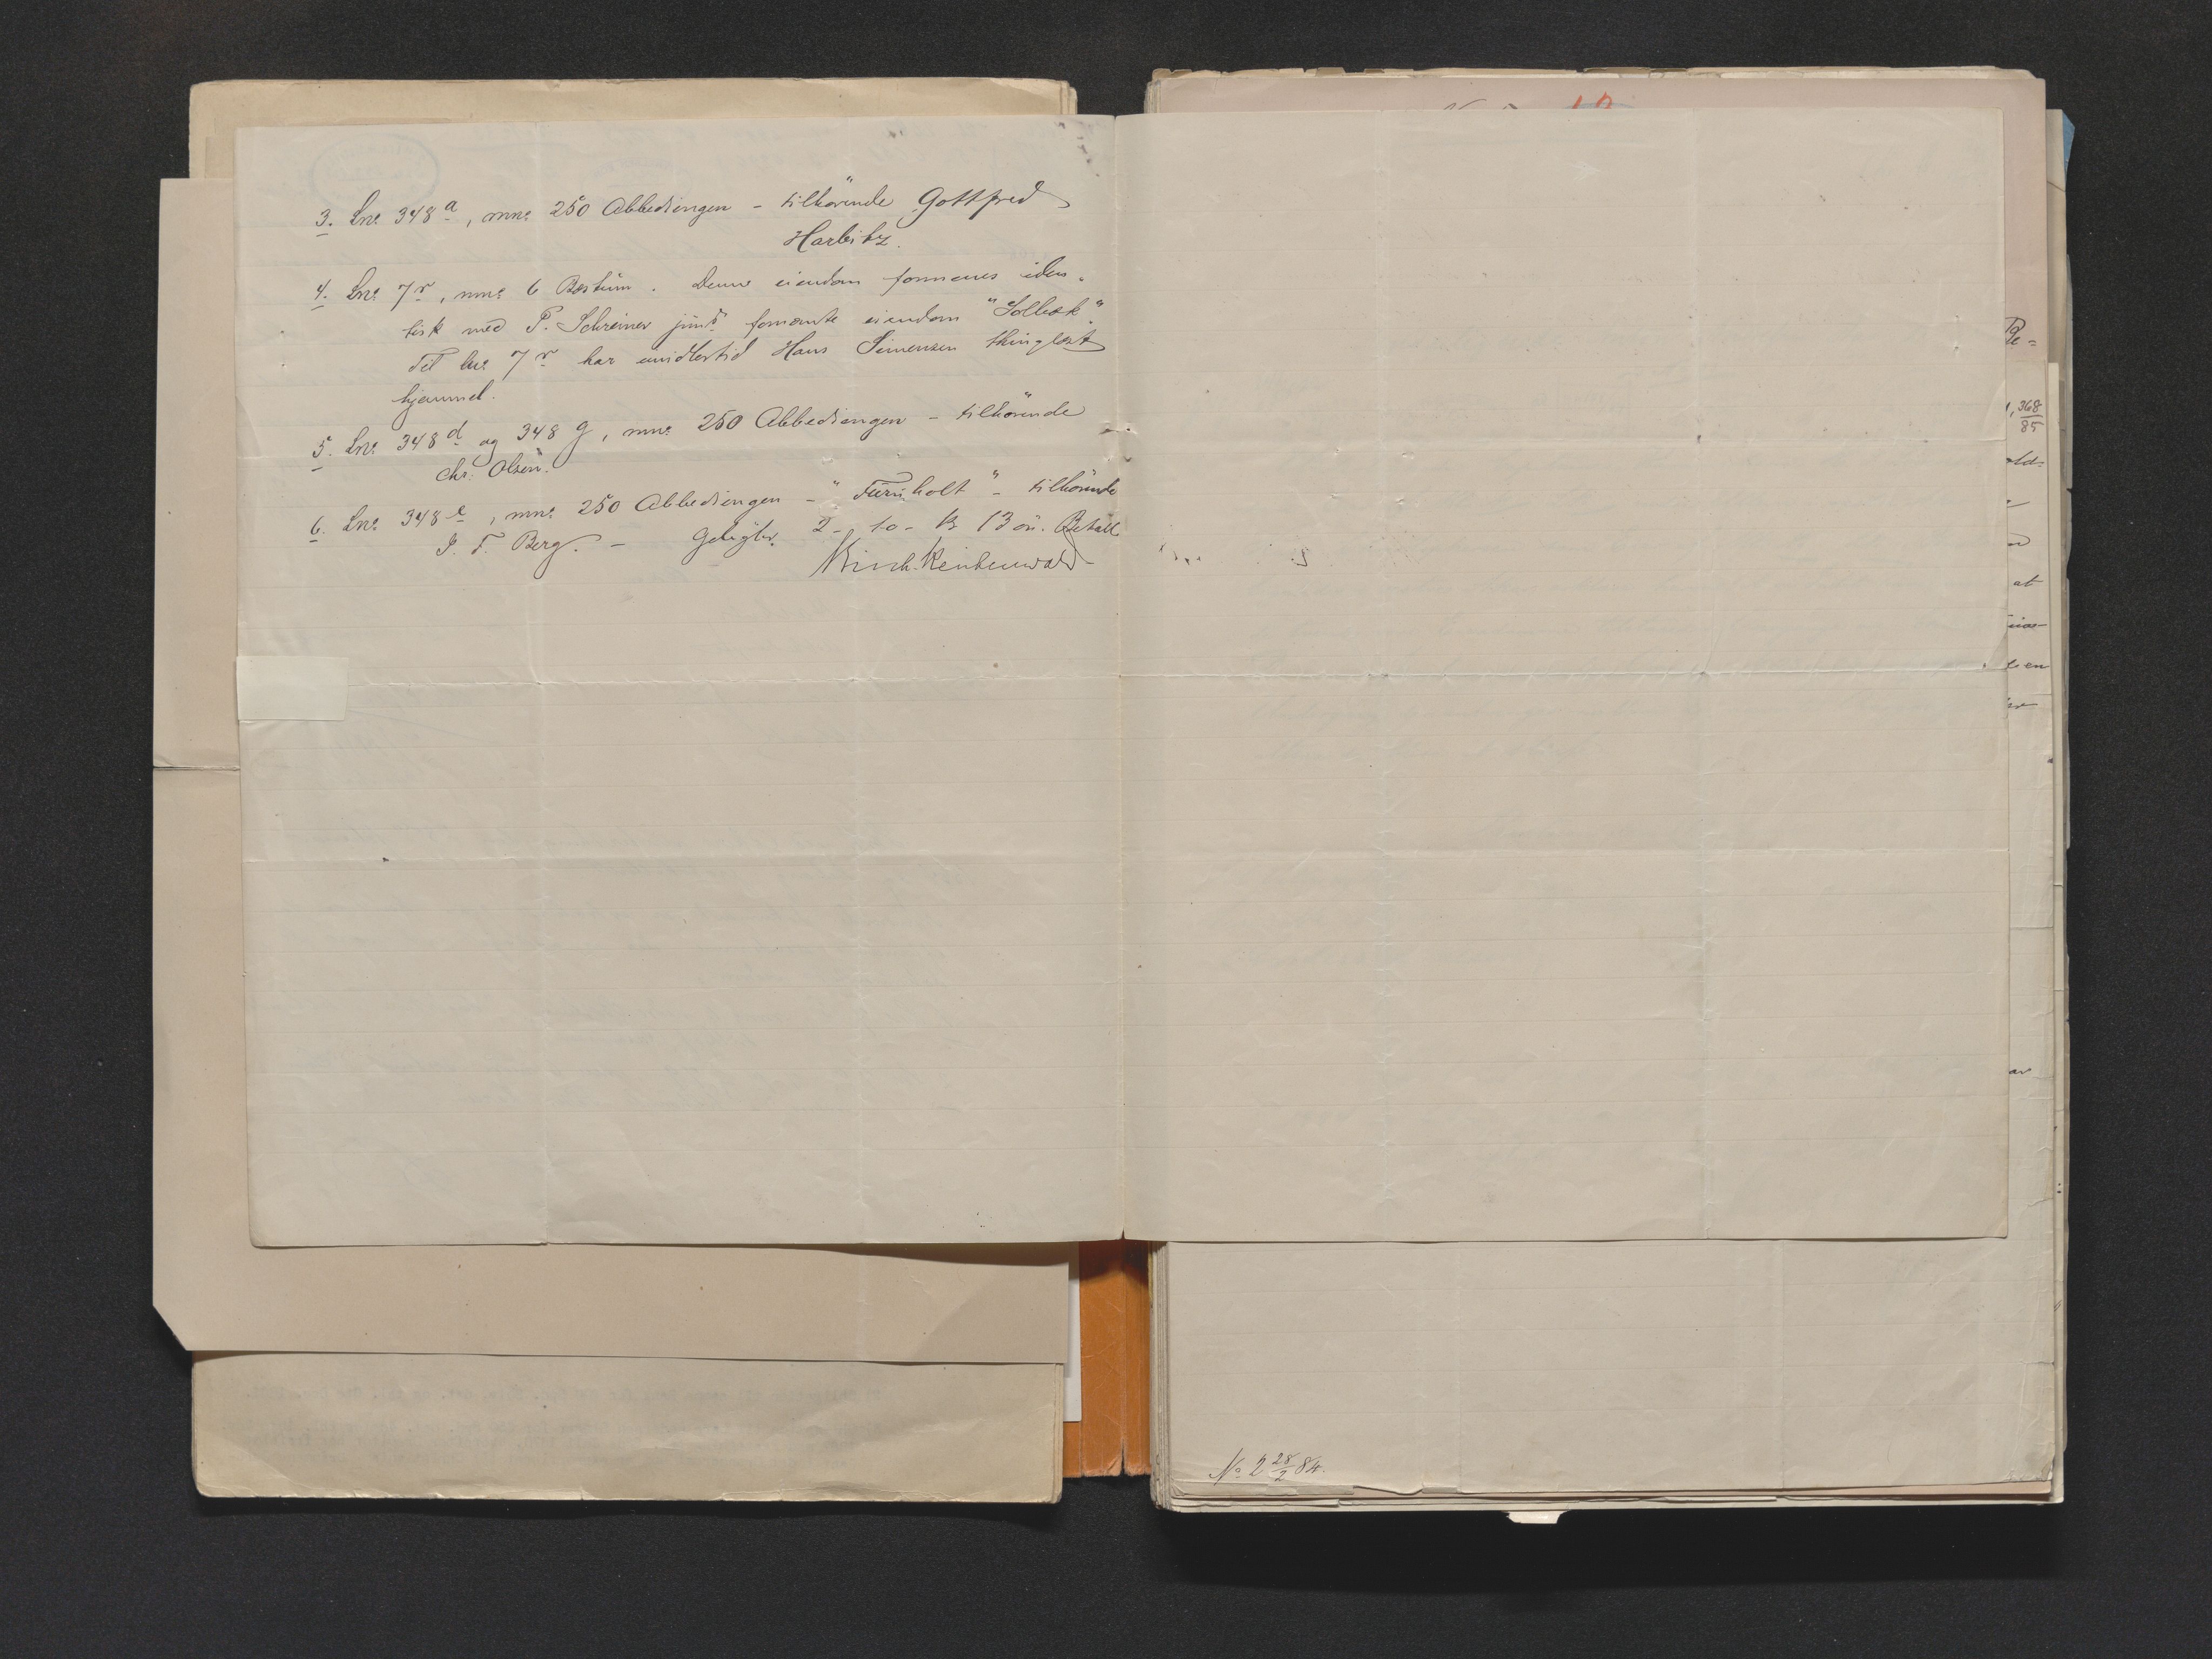 3. Lno 348 a, mno 250 Abbediengen - tilhörende Gottfred
Harbitz.
4. Lno 7 r, mno 6 Bestum. Denne eiendom formenes iden-
tisk med P. Schreiner junrs formente eiendom "Solbak".
Til lno 7 r har imidlertid Hans Simensen thinglæst
hjemmel.
5. Lno 348 d og 348 g, mno 250 Abbediengen - tilhörende
Chr. Olsen.
6. Lno 348 e, mno 250 Abbediengen - "Furuholt" - tilhörende
J. F. Berg. - 2 - 10 - 13 ör. Betalt
Kirch-Reichenwald
No 2 28/2 84.
Be=
368/85
old=
at
en
av